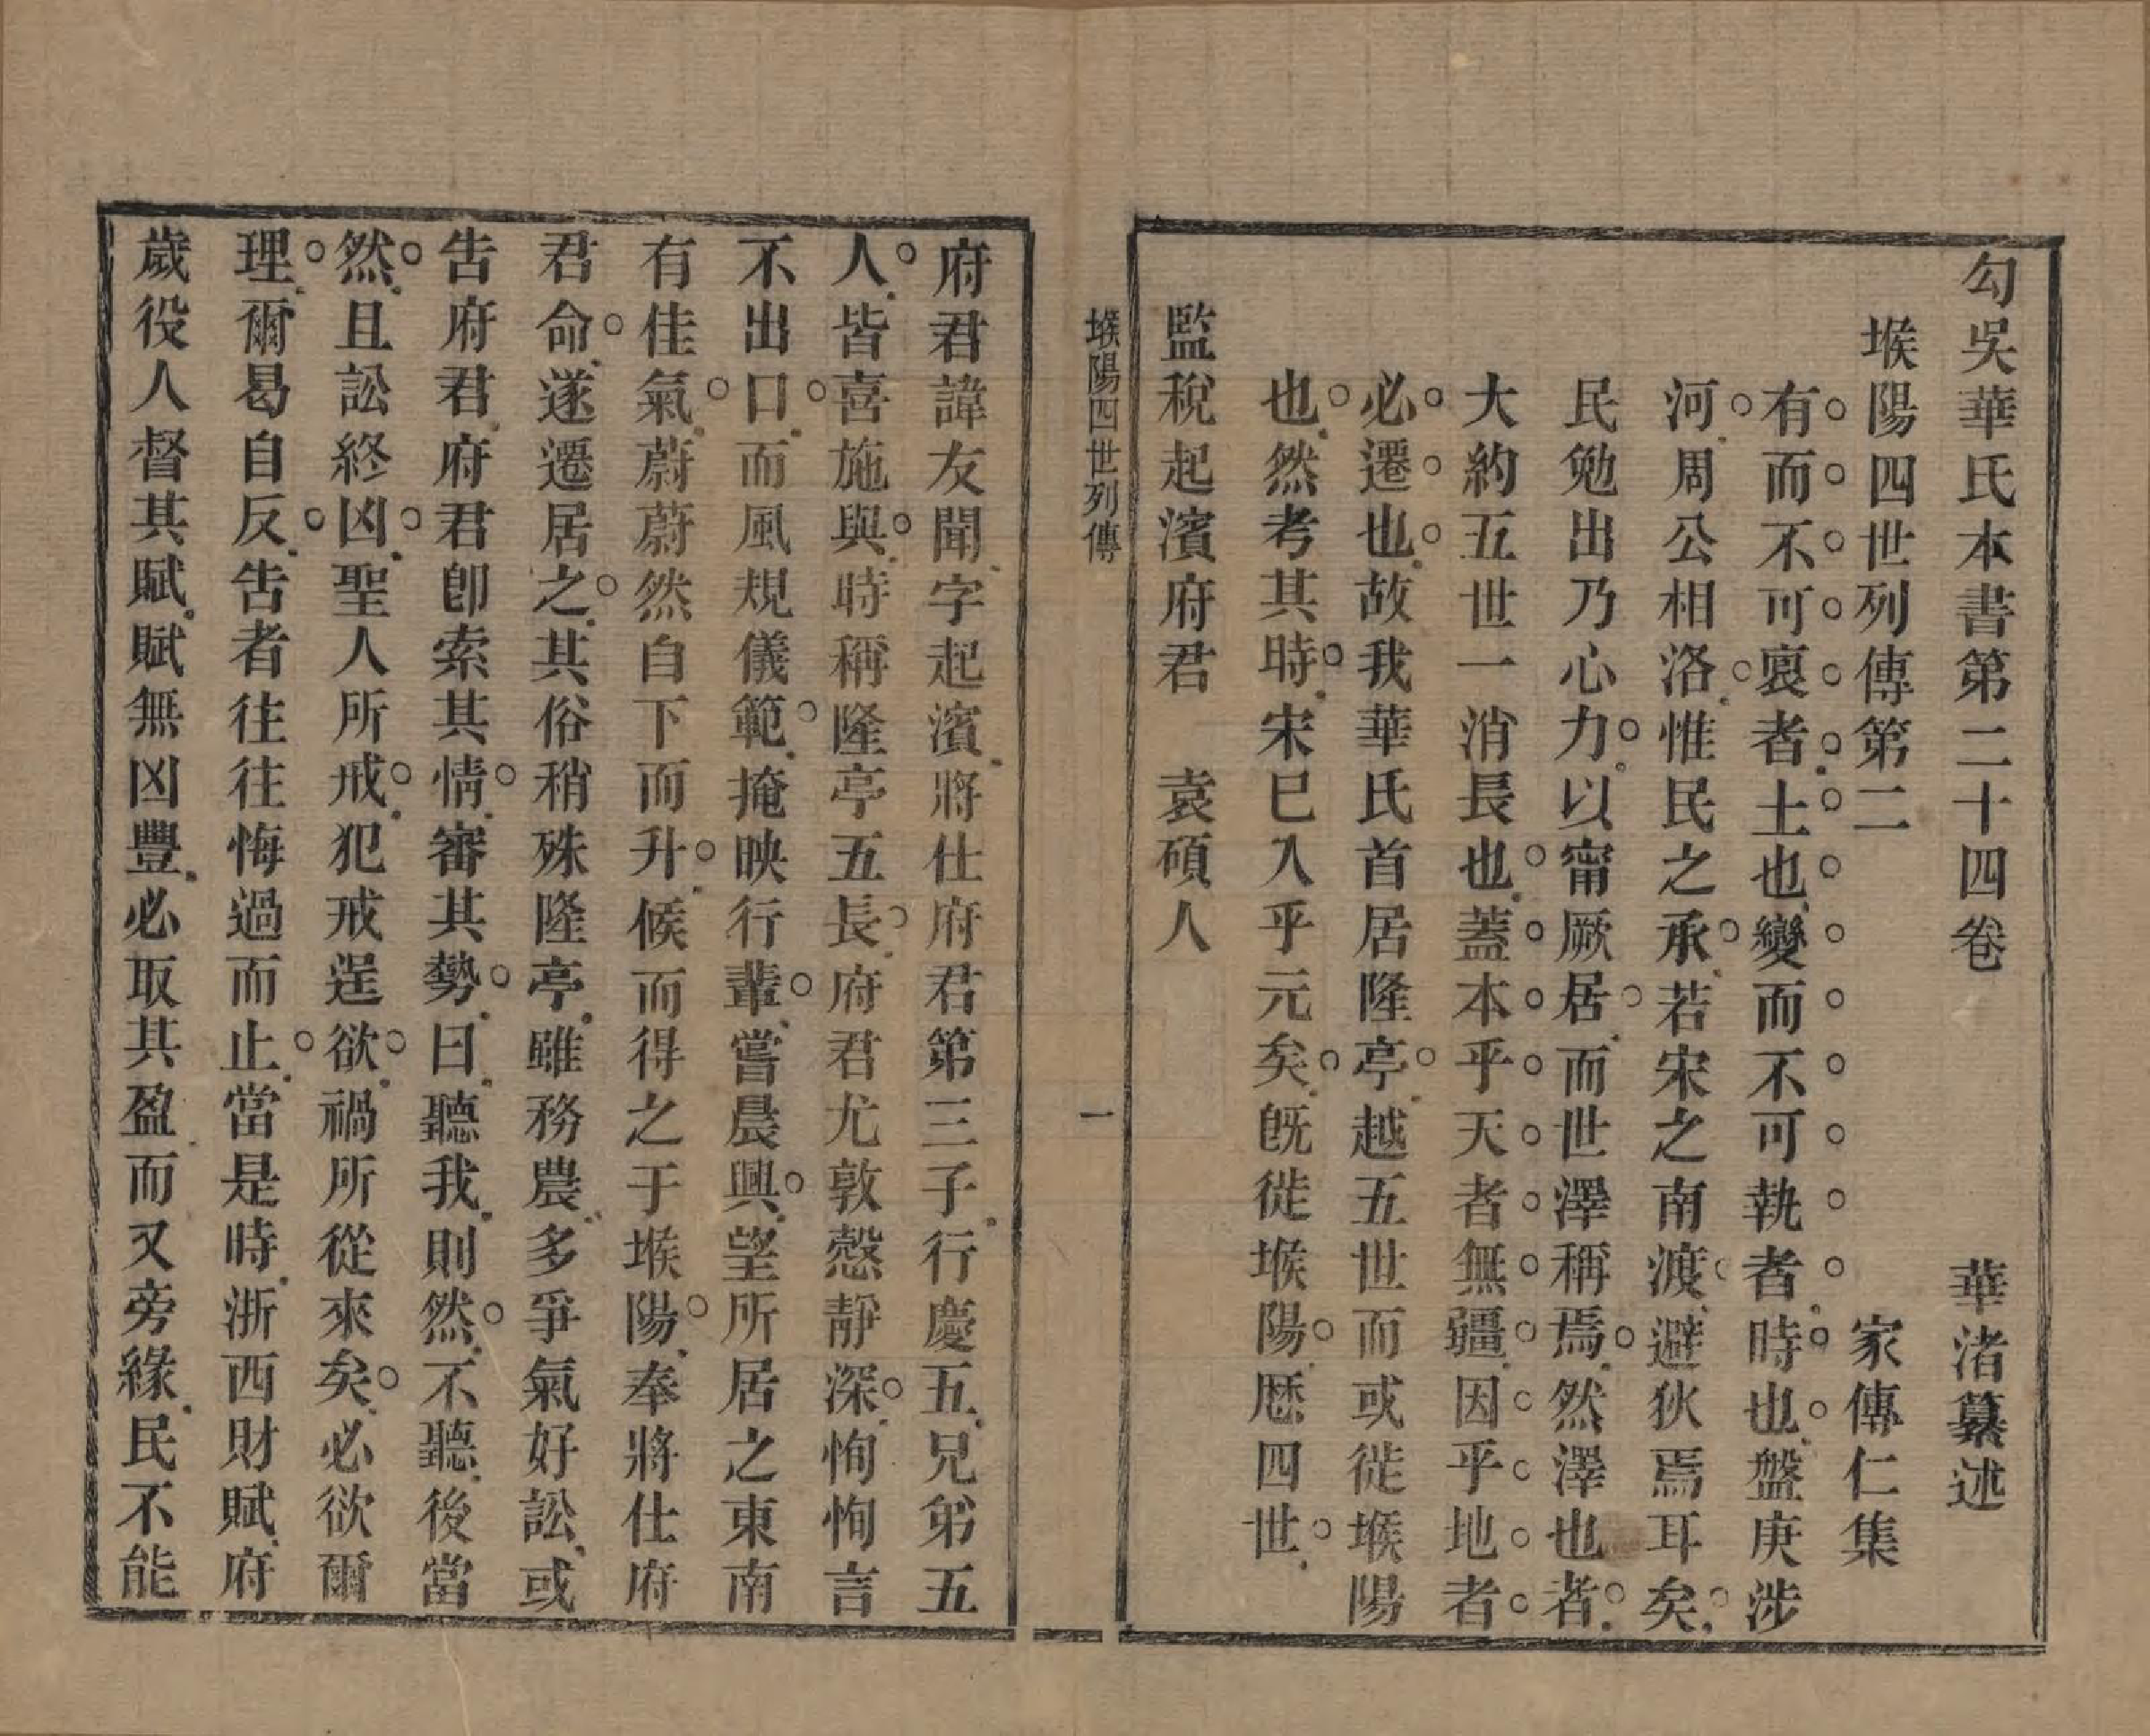 勾吳華氏本書第二十四卷　華渚纂述
堠陽四世列傳第二　家傳仁集
有而不可裒者土也變而不可執者時也盤庚涉
河周公相洛惟民之承若宋之南渡避狄焉耳矣
民勉出乃心力以甯厥居而世澤稱焉然澤也者
大約五世一消長也蓋本乎天者無疆因乎地者
必遷也故我華氏首居隆亭越五世而或徙堠陽
也然考其時宋巳入乎元矣旣徙堠陽歷四世
監稅起濱府君　袁碩人
堠陽四世列傳　一
府君諱友聞字起濱將仕府君第三子行慶五兄弟五
人皆喜施與時稱隆亭五長府君尤敦愨靜深恂恂言
不出口而風規儀範掩映行輩嘗晨興望所居之東南
有佳氣蔚蔚然自下而升候而得之于堠陽奉將仕府
君命遂遷居之其俗稍殊隆亭雖務農多爭氣好訟或
告府君府君卽索其情審其勢曰聽我則然不聽後當
然且訟終凶聖人所戒犯戒逞欲禍所從來矣必欲爾
理爾曷自反告者往往悔過而止當是時浙西財賦府
歲役人督其賦賦無凶豐必取其盈而又旁緣民不能